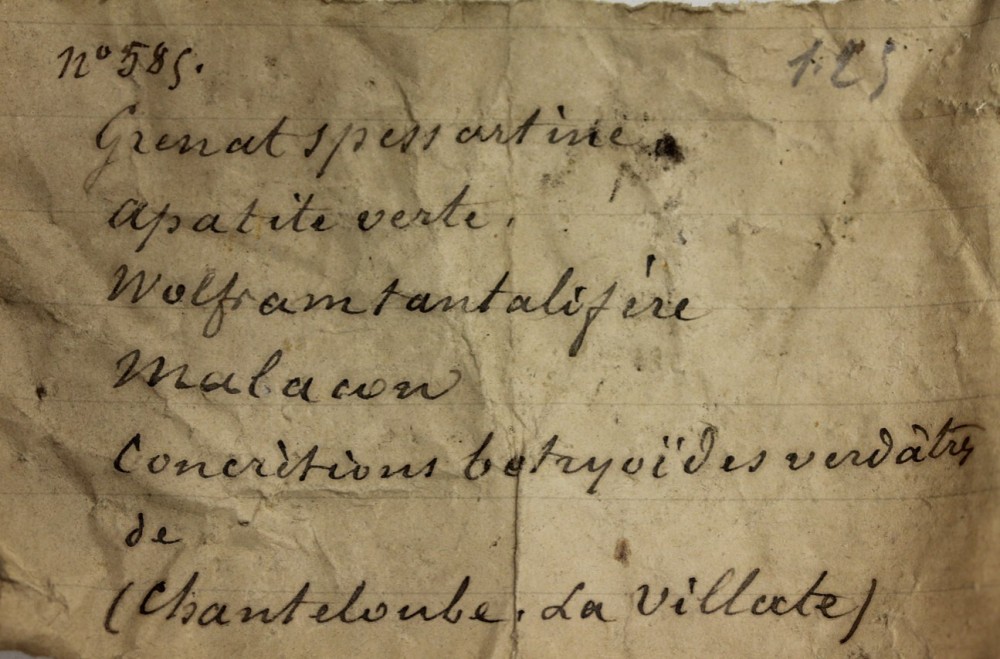 nº 585. 125
Grenat spessartine.
apatite verte.
Wolfram tantalifère
Malacon
Concrètions botryoïdes verdâtres
de
(Chanteloube. La Villate)